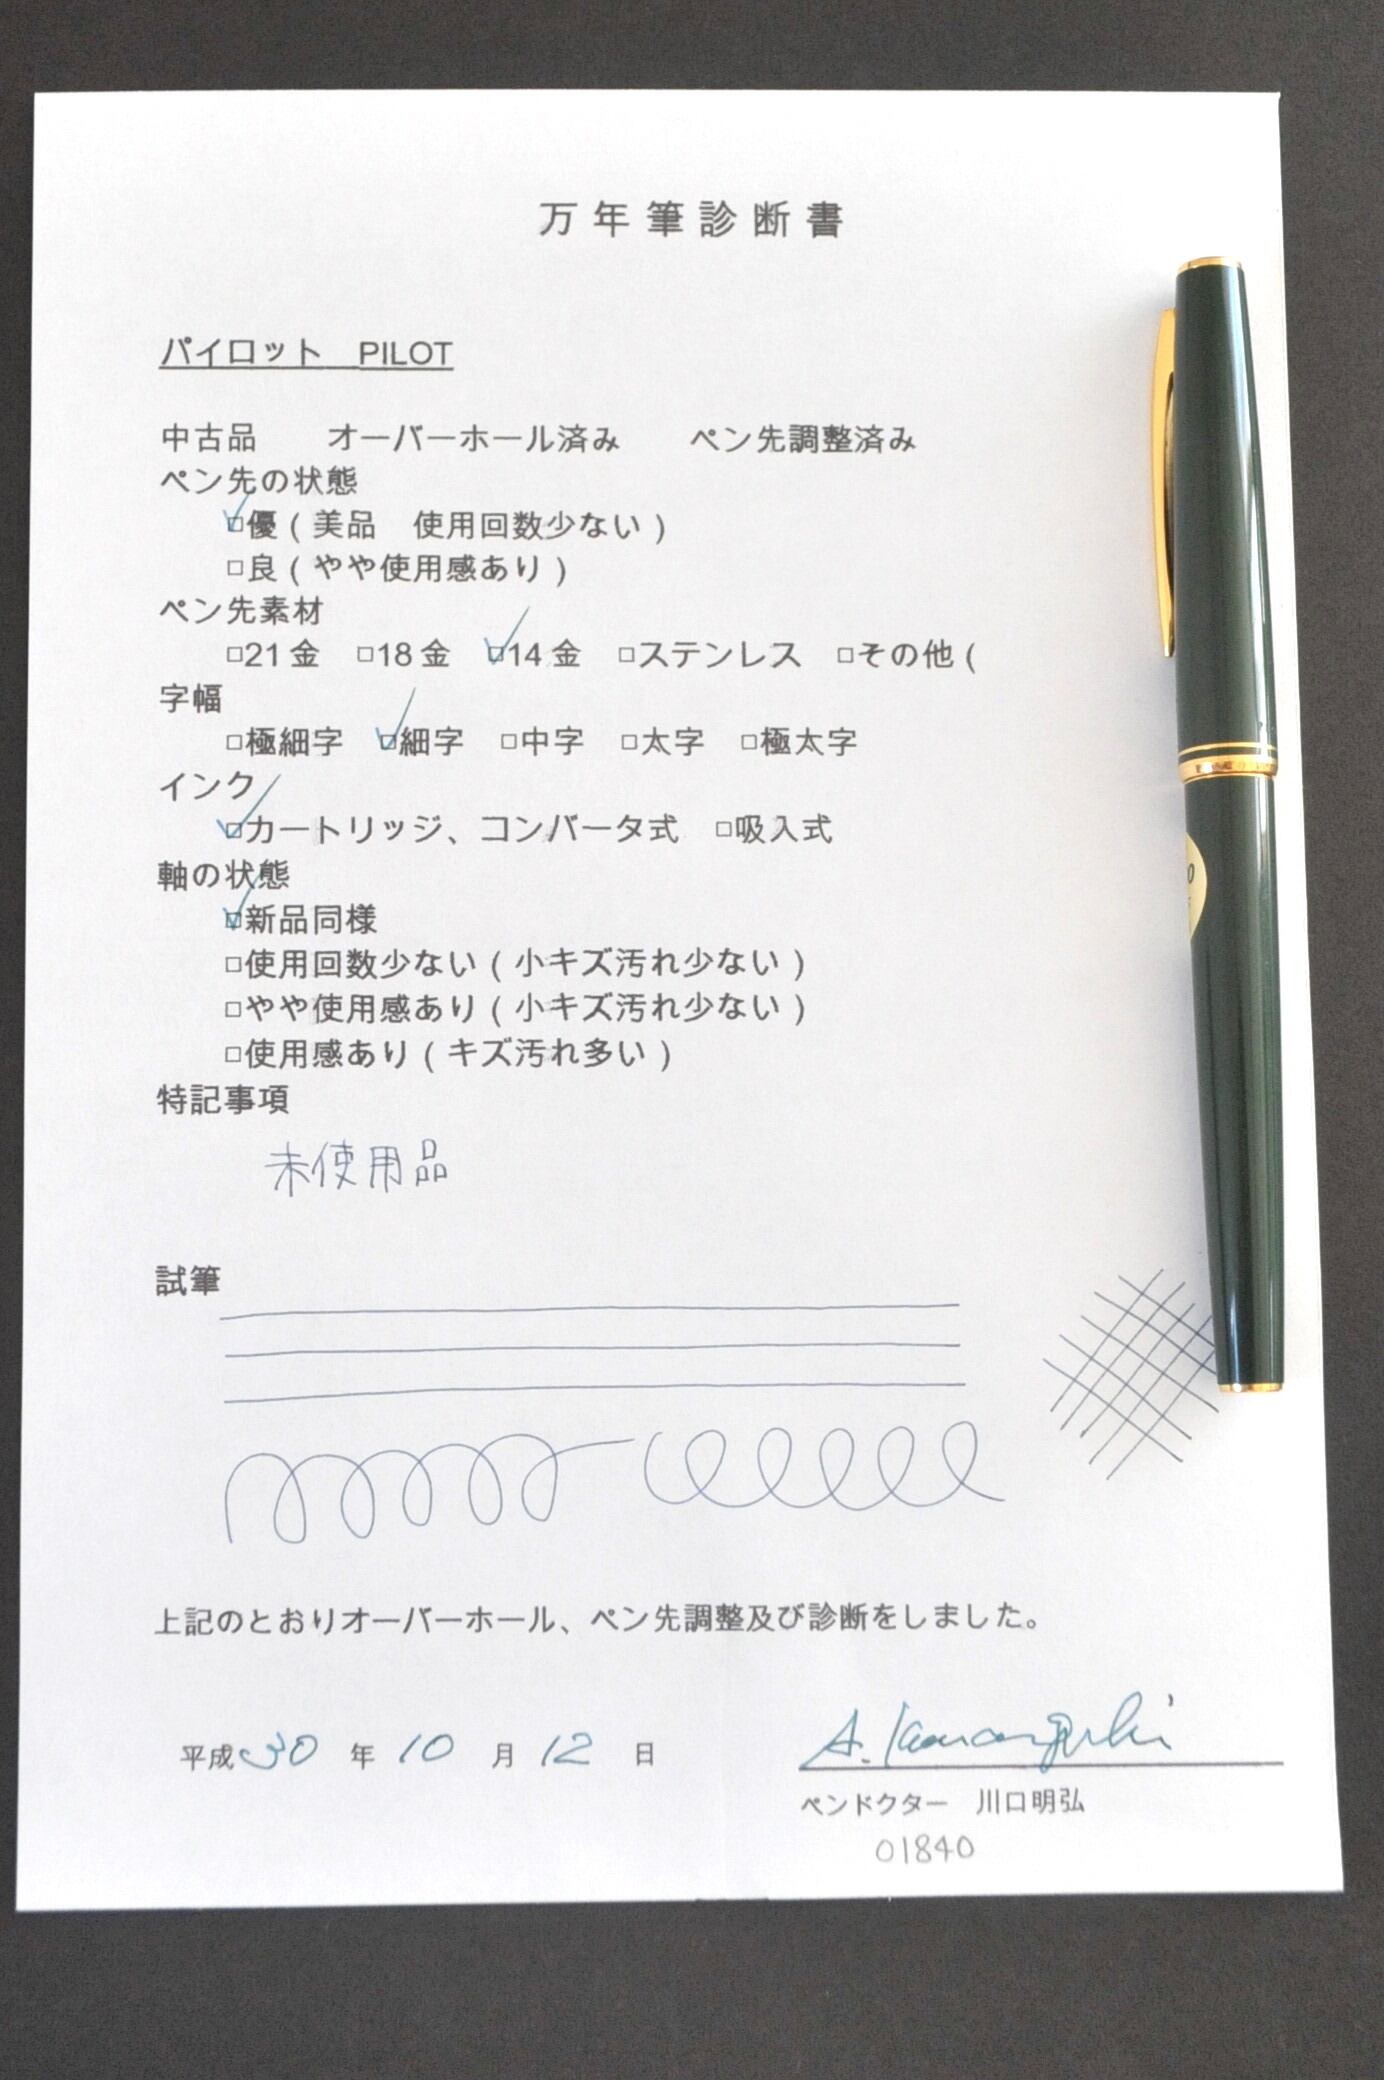 万年筆診断書
パイロット　PILOT
中古品　オーバーホール済み　ペン先調整済み
ペン先の状態
□優（美品　使用回数少ない）
□良（やや使用感あり）
ペン先素材
□21金　□18金　□14金　□ステンレス　□その他（
字幅
□極細字　□細字　□中字　□太字　□極太字
インク
□カートリッジ、コンバータ式　□吸入式
軸の状態
□新品同様
□使用回数少ない（小キズ汚れ少ない）
□やや使用感あり（小キズ汚れ少ない）
□使用感あり（キズ汚れ多い）
特記事項
未使用品
試筆
上記のとおりオーバーホール、ペン先調整及び診断をしました。
平成30年10月12日
A. Kawaguchi
ペンドクター　川口明弘
01840